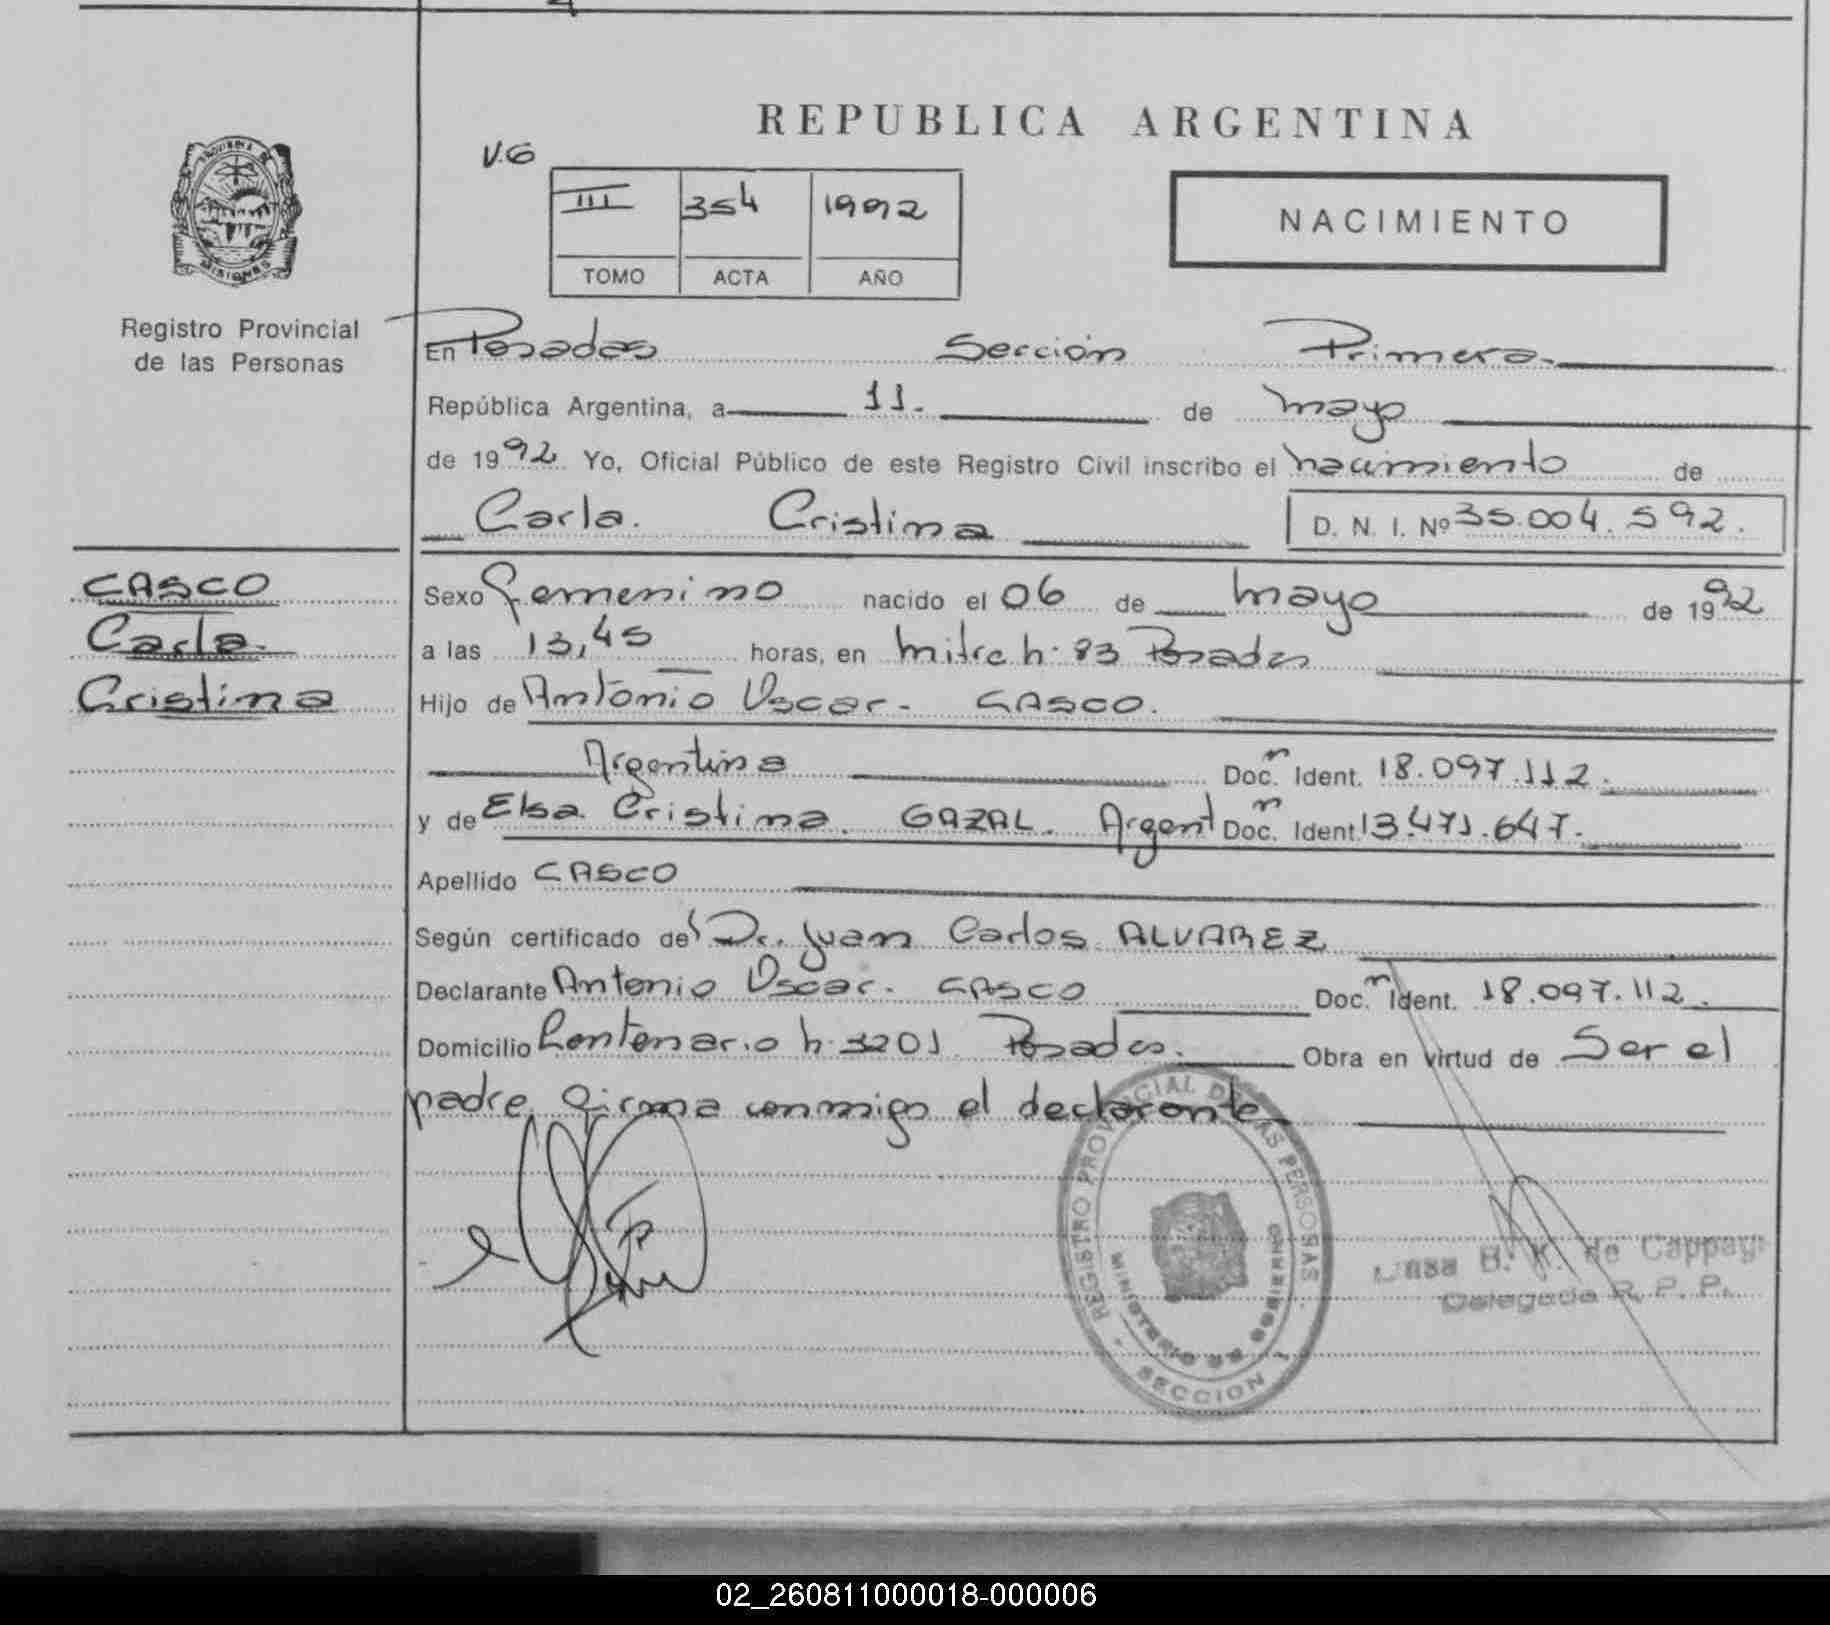 REPUBLICA ARGENTINA
V.G
III 354 1992
TOMO ACTA AÑO
NACIMIENTO
PROVINCIA DE
MISIONES
Registro Provincial
de las Personas
En Posadas Sección Primera.
República Argentina, a 11. de mayo
de 1992 Yo, Oficial Público de este Registro Civil inscribo el nacimiento de
Carla. Cristina D. N. I. Nº 35.004.592.
CASCO
Carla.
Cristina
Sexo femenino nacido el 06 de mayo de 1992
a las 13,45 horas, en mitre n. 83 Posadas
Hijo de Antonio Oscar. CASCO.
Argentina Doc. n Ident. 18.097.112.
y de Elsa Cristina. GAZAL. Argent Doc. n Ident. 13.471.647.
Apellido CASCO
Según certificado del Dr. Juan Carlos ALVAREZ
Declarante Antonio Oscar. CASCO Doc. n Ident. 18.097.112.
Domicilio Centenario n. 3201 Posadas. Obra en virtud de Ser el
padre, firma conmigo el declarante
REGISTRO PROVINCIAL DE LAS PERSONAS.
MINISTERIO DE GOBIERNO
SECCION 1
B. K. de Cappag
Delegada R. P. P.
02_260811000018-000006